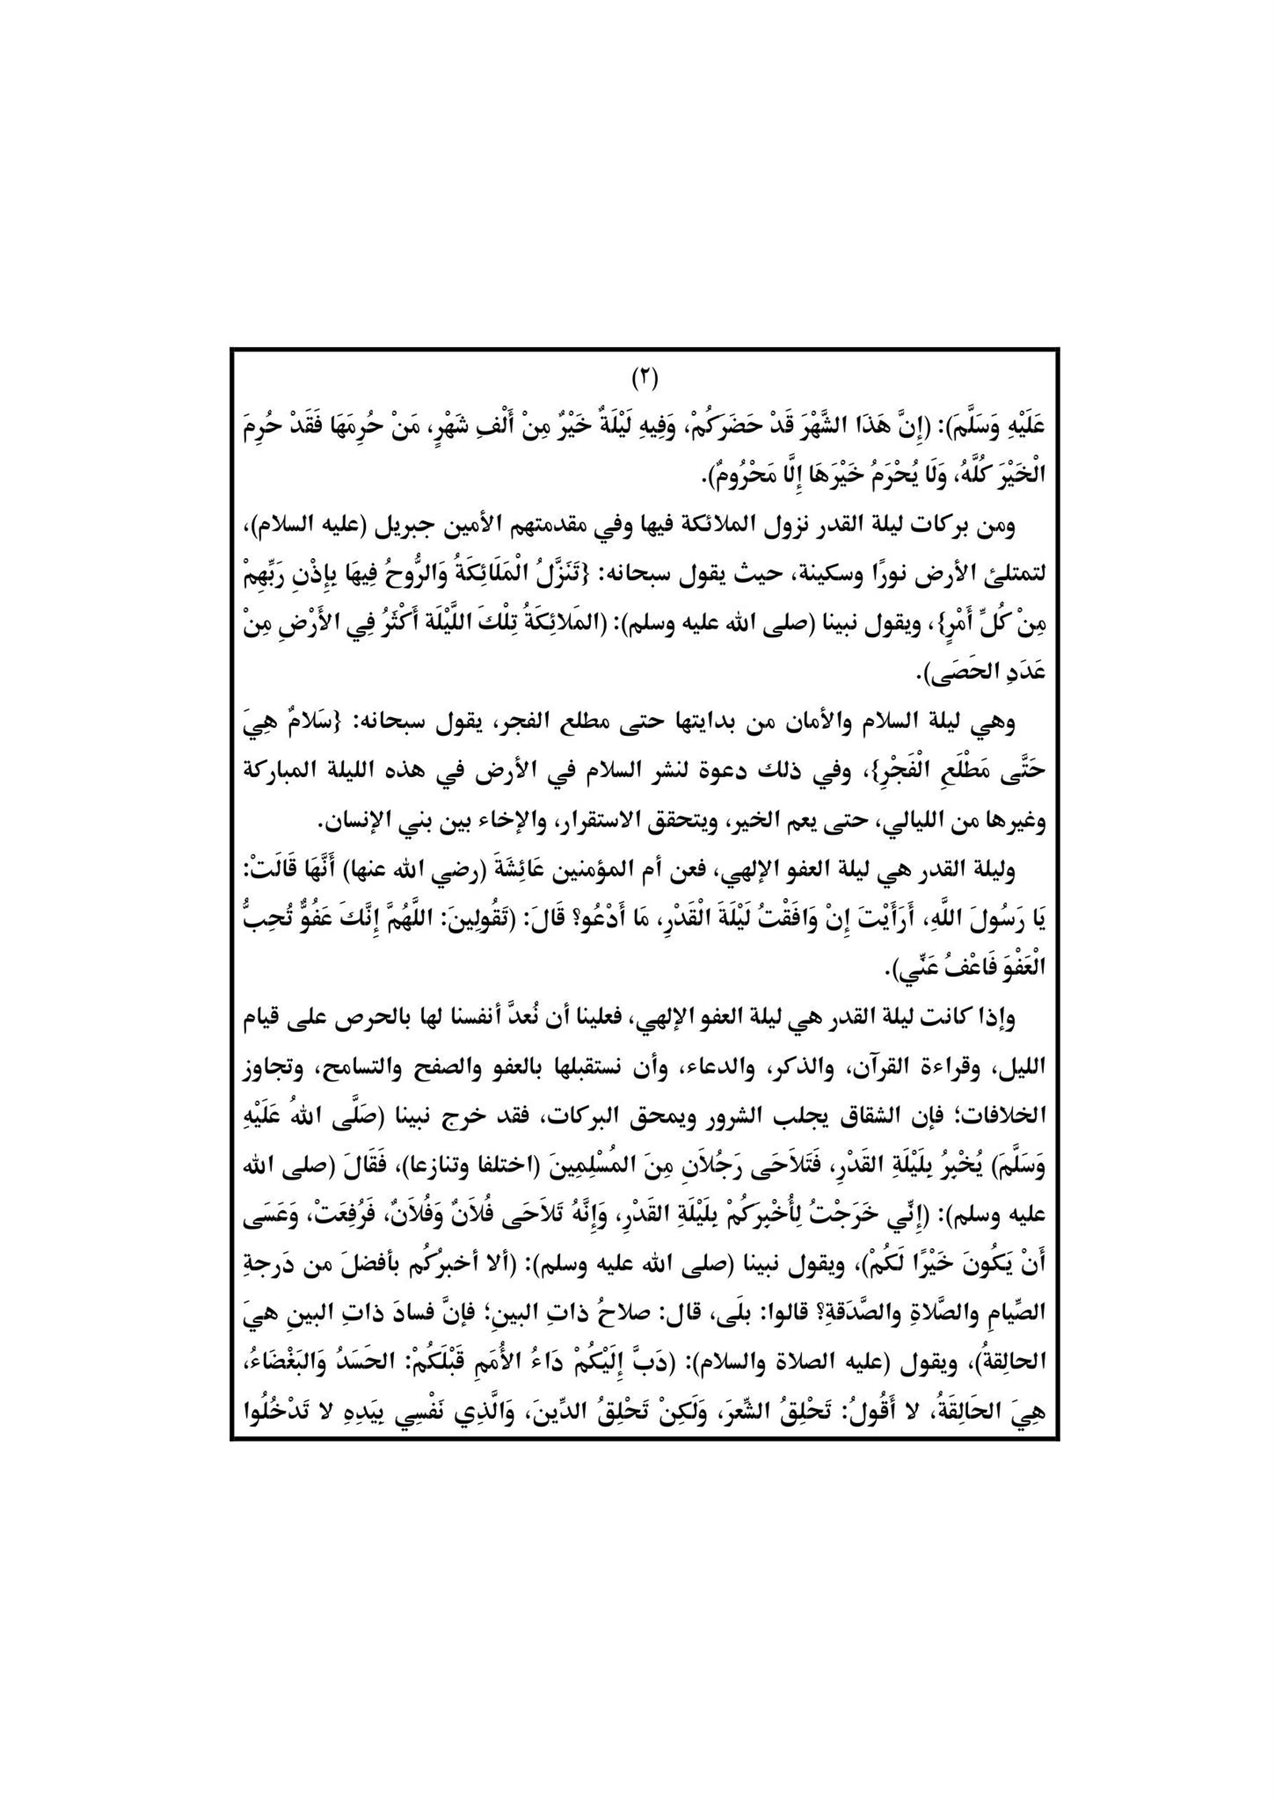 (٢)
عَلَيْهِ وَسَلَّمَ): (إِنَّ هَذَا الشَّهْرَ قَدْ حَضَرَكُمْ، وَفِيهِ لَيْلَةٌ خَيْرٌ مِنْ أَلْفِ شَهْرٍ، مَنْ حُرِمَهَا فَقَدْ حُرِمَ
الْخَيْرَ كُلَّهُ، وَلَا يُحْرَمُ خَيْرَهَا إِلَّا مَحْرُومٌ).
ومن بركات ليلة القدر نزول الملائكة فيها وفي مقدمتهم الأمين جبريل (عليه السلام)،
لتمتلئ الأرض نورًا وسكينة، حيث يقول سبحانه: {تَنَزَّلُ الْمَلَائِكَةُ وَالرُّوحُ فِيهَا بِإِذْنِ رَبِّهِمْ
مِنْ كُلِّ أَمْرٍ}، ويقول نبينا (صلى الله عليه وسلم): (المَلائِكَةُ تِلْكَ اللَّيْلَة أَكْثَرُ فِي الأَرْضِ مِنْ
عَدَدِ الحَصَى).
وهي ليلة السلام والأمان من بدايتها حتى مطلع الفجر، يقول سبحانه: {سَلامٌ هِيَ
حَتَّى مَطْلَعِ الْفَجْرِ}، وفي ذلك دعوة لنشر السلام في الأرض في هذه الليلة المباركة
وغيرها من الليالي، حتى يعم الخير، ويتحقق الاستقرار، والإخاء بين بني الإنسان.
وليلة القدر هي ليلة العفو الإلهي، فعن أم المؤمنين عَائِشَةَ (رضي الله عنها) أَنَّهَا قَالَتْ:
يَا رَسُولَ اللَّهِ، أَرَأَيْتَ إِنْ وَافَقْتُ لَيْلَةَ الْقَدْرِ، مَا أَدْعُو؟ قَالَ: (تَقُولِينَ: اللَّهُمَّ إِنَّكَ عَفُوٌّ تُحِبُّ
الْعَفْوَ فَاعْفُ عَنِّي).
وإذا كانت ليلة القدر هي ليلة العفو الإلهي، فعلينا أن نُعدَّ أنفسنا لها بالحرص على قيام
الليل، وقراءة القرآن، والذكر، والدعاء، وأن نستقبلها بالعفو والصفح والتسامح، وتجاوز
الخلافات؛ فإن الشقاق يجلب الشرور ويمحق البركات، فقد خرج نبينا (صَلَّى اللهُ عَلَيْهِ
وَسَلَّمَ) يُخْبِرُ بِلَيْلَةِ القَدْرِ، فَتَلاَحَى رَجُلاَنِ مِنَ المُسْلِمِينَ (اختلفا وتنازعا)، فَقَالَ (صلى الله
عليه وسلم): (إِنِّي خَرَجْتُ لِأُخْبِرَكُمْ بِلَيْلَةِ القَدْرِ، وَإِنَّهُ تَلاَحَى فُلاَنٌ وَفُلاَنٌ، فَرُفِعَتْ، وَعَسَى
أَنْ يَكُونَ خَيْرًا لَكُمْ)، ويقول نبينا (صلى الله عليه وسلم): (ألا أخبرُكُم بأفضلَ من دَرجةِ
الصِّيامِ والصَّلاةِ والصَّدَقةِ؟ قالوا: بلَى، قال: صلاحُ ذاتِ البينِ؛ فإنَّ فسادَ ذاتِ البينِ هيَ
الحالِقةُ)، ويقول (عليه الصلاة والسلام): (دَبَّ إِلَيْكُمْ دَاءُ الأُمَمِ قَبْلَكُمْ: الحَسَدُ وَالبَغْضَاءُ،
هِيَ الحَالِقَةُ، لا أَقُولُ: تَحْلِقُ الشِّعرَ، وَلَكِنْ تَحْلِقُ الدِّينَ، وَالَّذِي نَفْسِي بِيَدِهِ لا تَدْخُلُوا